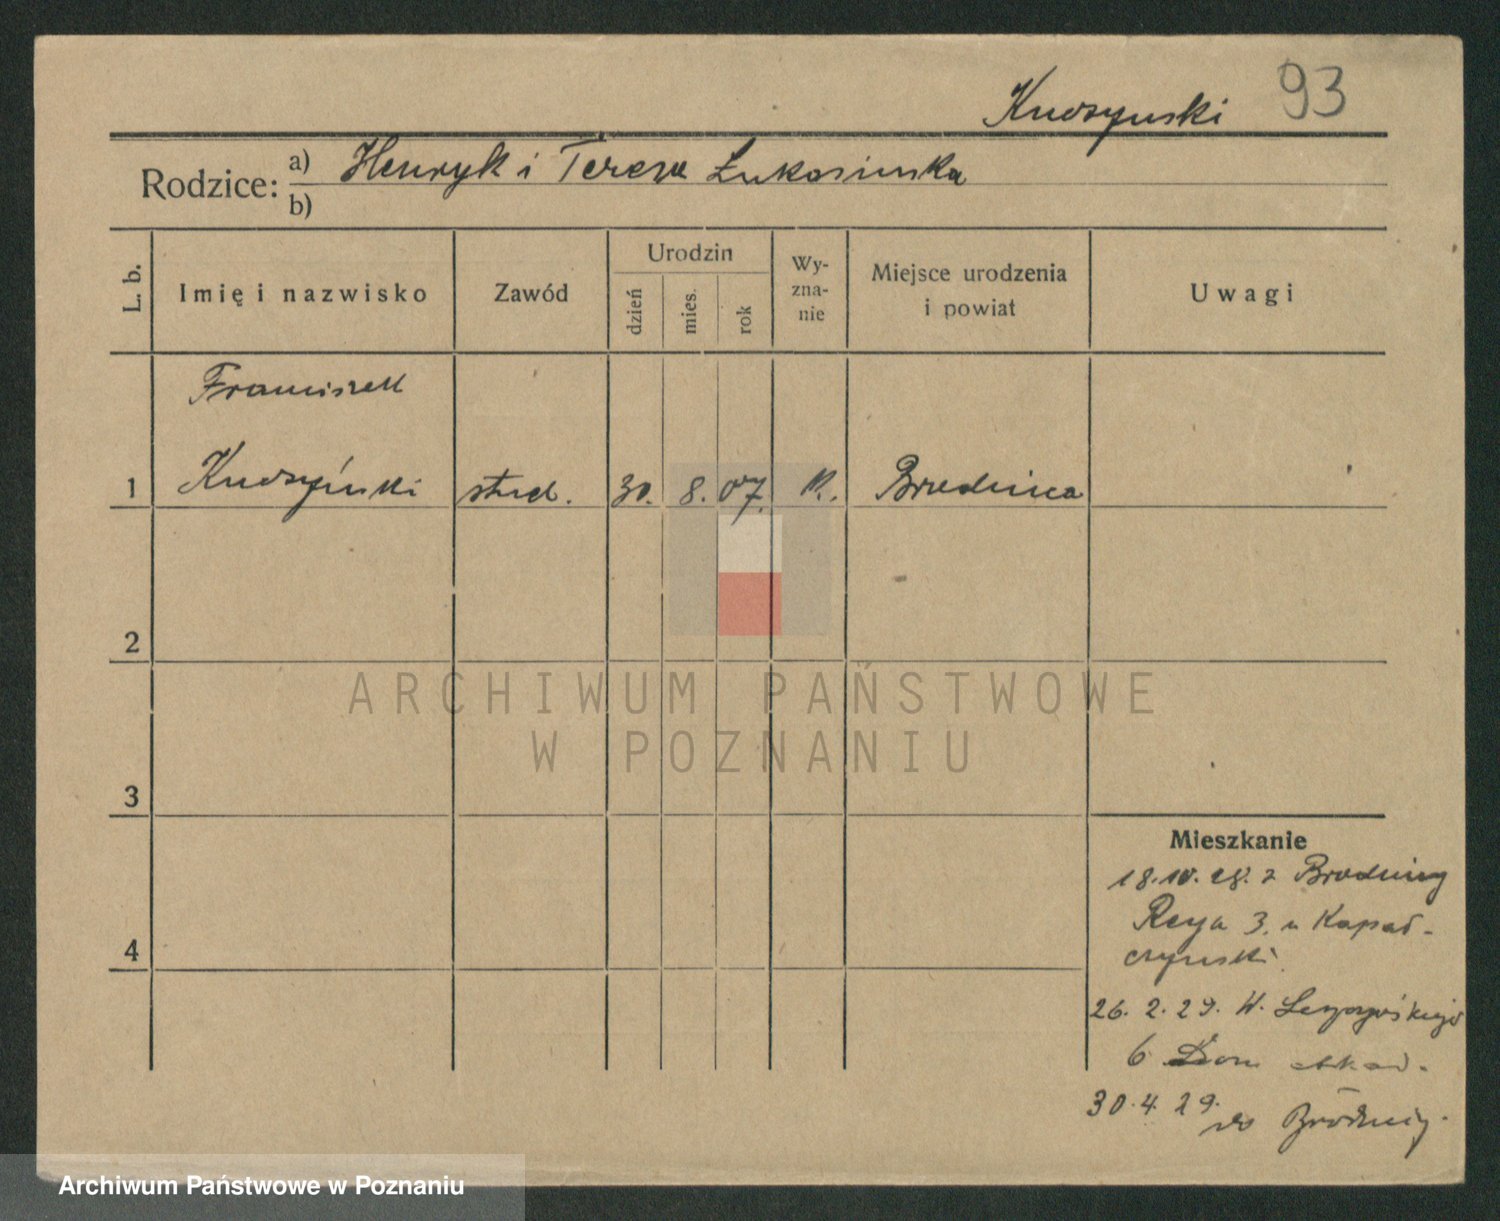 Knoszynski 93
Rodzice: a) Henryk i Teresa Łukosinska
b)
L. b. Imię i nazwisko Zawód Urodzin dzień mies. rok Wy-zna-nie Miejsce urodzenia i powiat Uwagi
Franciszek
1 Knoszyński stud. 30. 8. 07. K. Brodnica
2
ARCHIWUM PAŃSTWOWE
W POZNANIU
3
Mieszkanie
18.10.28. z Brodnicy
Reya 3. u Kapał-
czynski
4
26. 2. 29. W.
6 Dom akad.
30.4 29. do Brodnicy.
Archiwum Państwowe w Poznaniu